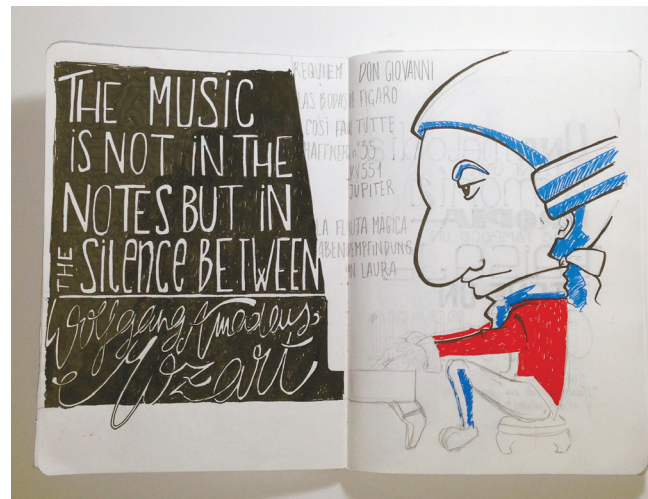 THE MUSIC
iS NOT iN THE
NOTES BUT iN
THE SilenCe BETWEEN
Wolfgang Amadeus
Mozart
REQUIEM DON GIOVANNI
LAS BODAS FIGARO
COSÌ FAN TUTTE
HAFFNER nº35
KV551
JUPITER
LA FLAUTA MÁGICA
ABENDEMPFINDUNG
AN LAURA